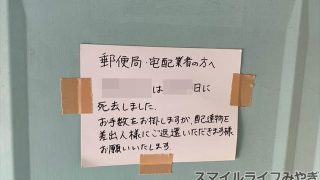 郵便局・宅配業者の方へ
は 日に
死去しました.
お手数をお掛けしますが、配達物を
差出人様にご返還いただきます様
お願いいたします.
スマイルライフみやぎ